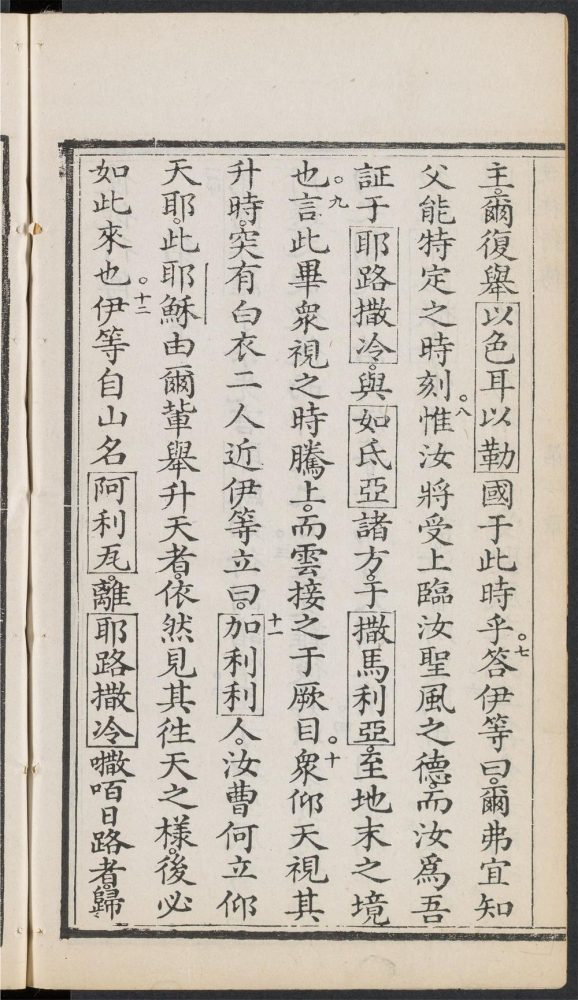 主。爾復舉以色耳以勒國于此時乎。七答伊等曰。爾弗宜知
父能特定之時刻。八惟汝將受上臨汝聖風之德。而汝爲吾
証于耶路撒冷。與如氐亞諸方。于撒馬利亞。至地末之境
也。九言此畢衆視之時騰上。而雲接之于厥目。十衆仰天視其
升時。突有白衣二人近伊等立曰。十一加利利人。汝曹何立仰
天耶。此耶穌由爾軰舉升天者。依然見其往天之樣。後必
如此來也。十二伊等自山名阿利瓦。離耶路撒冷㘔咟日路者。歸